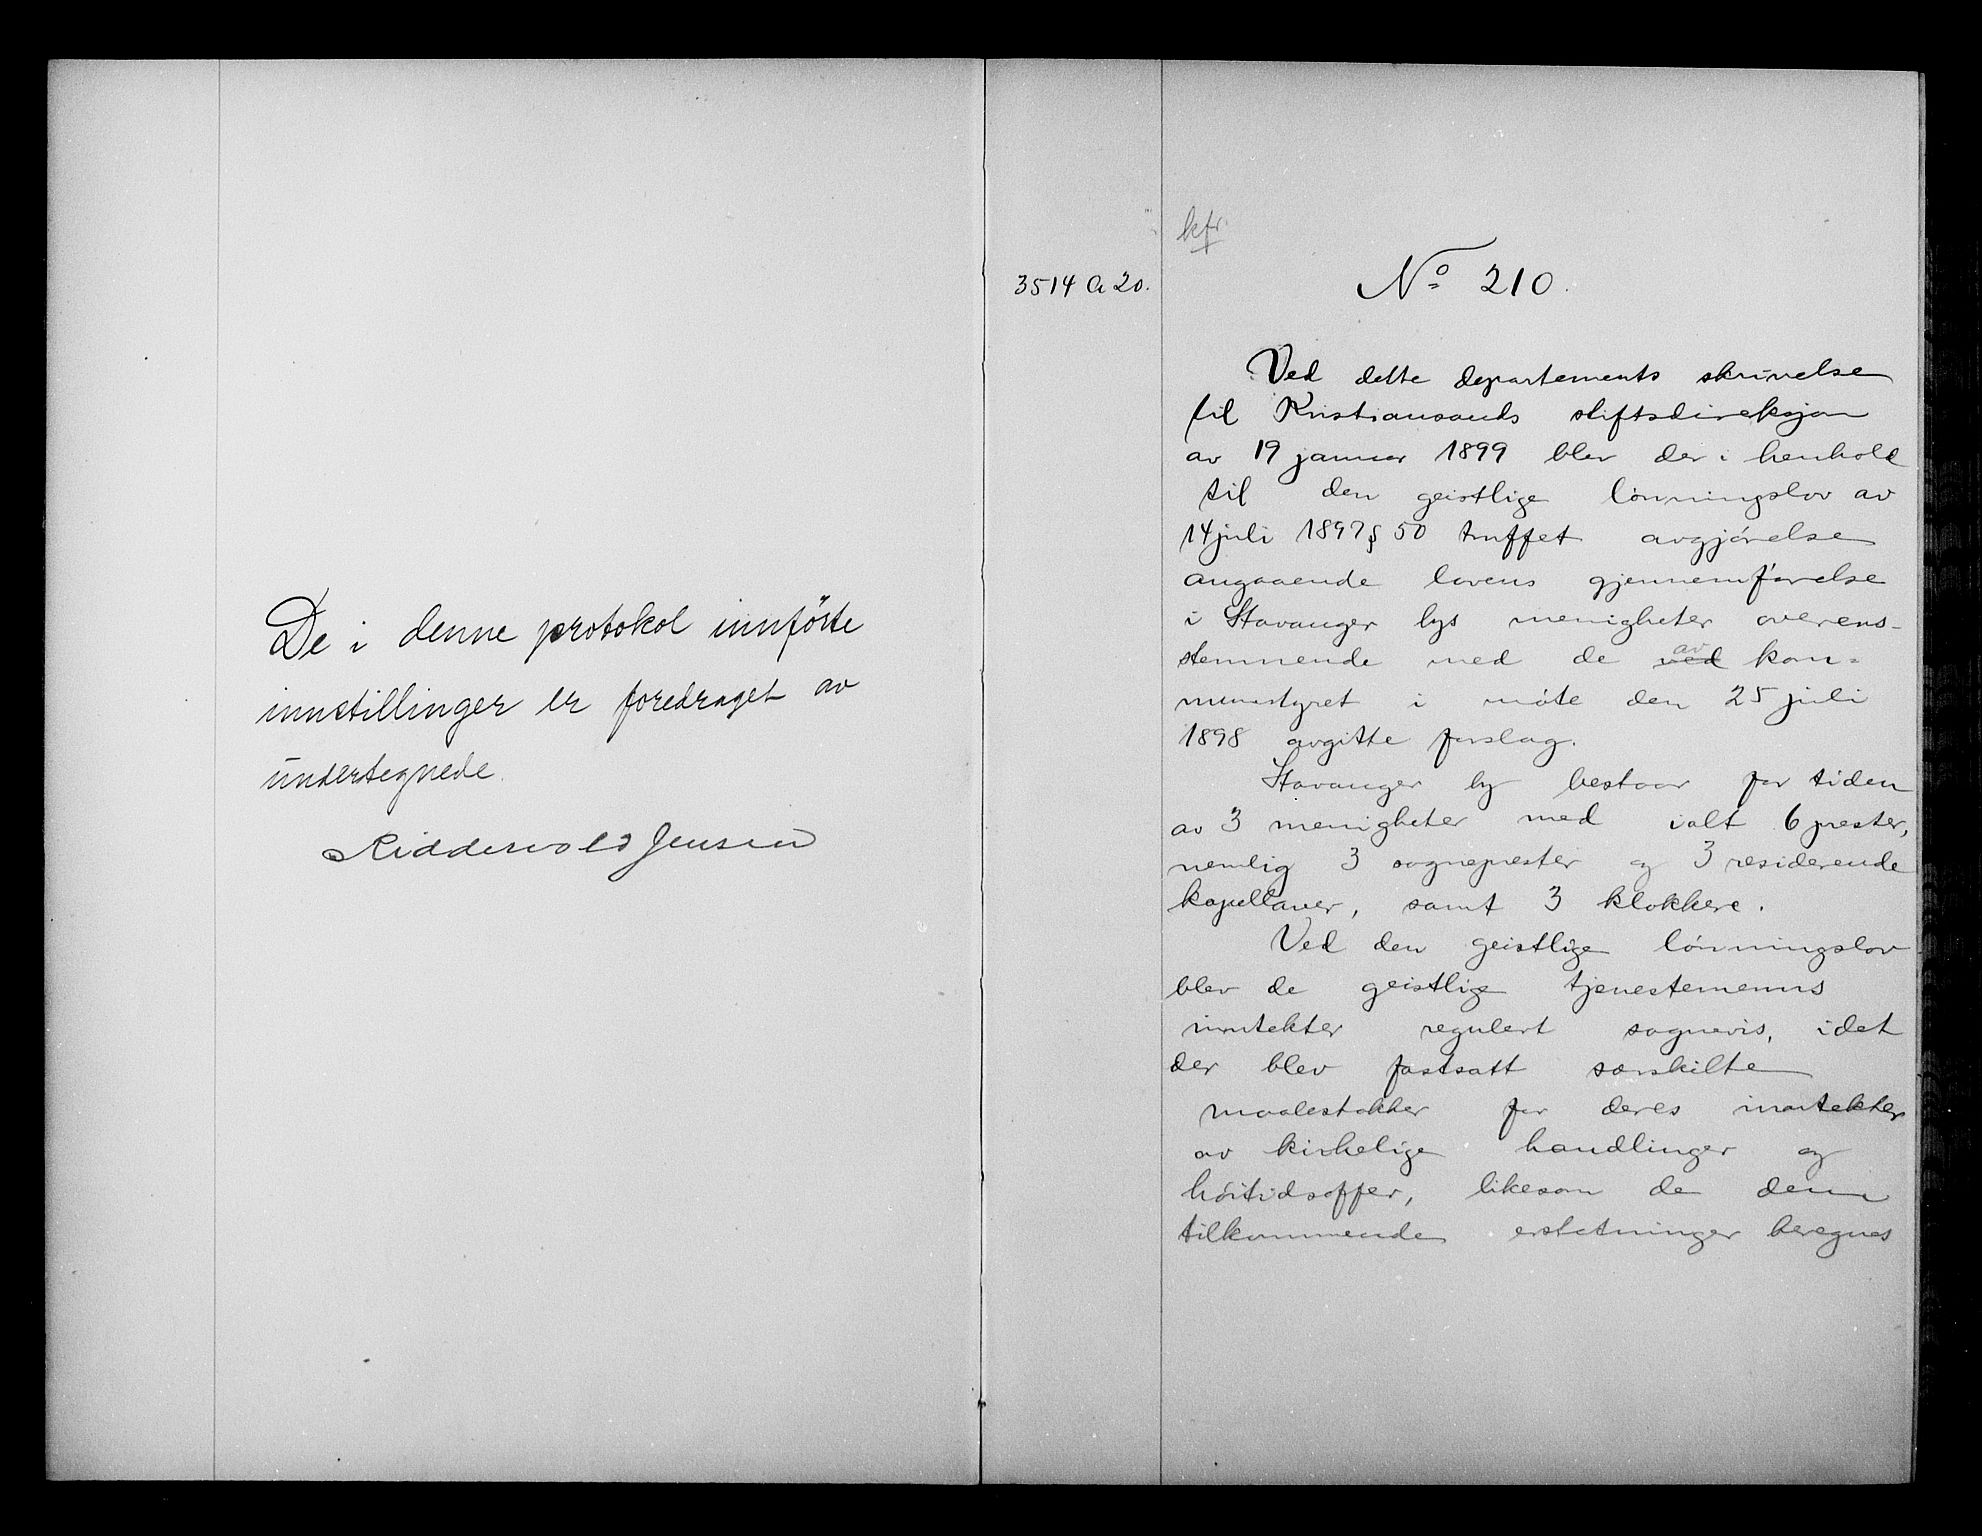 De i denne protokol innförte
innstillinger er foredraget av
undertegnede.
Riddervold Jensen
kfr.
3514 A 20.
No 210.
Ved dette departements skrivelse
til Kristiansands stiftsdireksjon
av 19 januar 1899 blev der i henhold
til den geistlige lønningslov av
14 juli 1897 § 50 truffet avgjørelse
angaaende lovens gjennemførelse
i Stavanger bys menigheter overens-
stemmende med de ved av kom-
munestyret i møte den 25 juli
1898 avgitte forslag.
Stavanger by bestaar for tiden
av 3 menigheter med ialt 6 prester,
nemlig 3 sogneprester og 3 residerende
kapellaner, samt 3 klokkere.
Ved den geistlige lønningslov
blev de geistlige tjenestemenns
inntekter regulert sognevis, idet
der blev fastsatt særskilte
maalestokker for deres inntekter
av kirkelige handlinger og
høitidsoffer, likesom de dem
tilkommende erstatninger beregnes